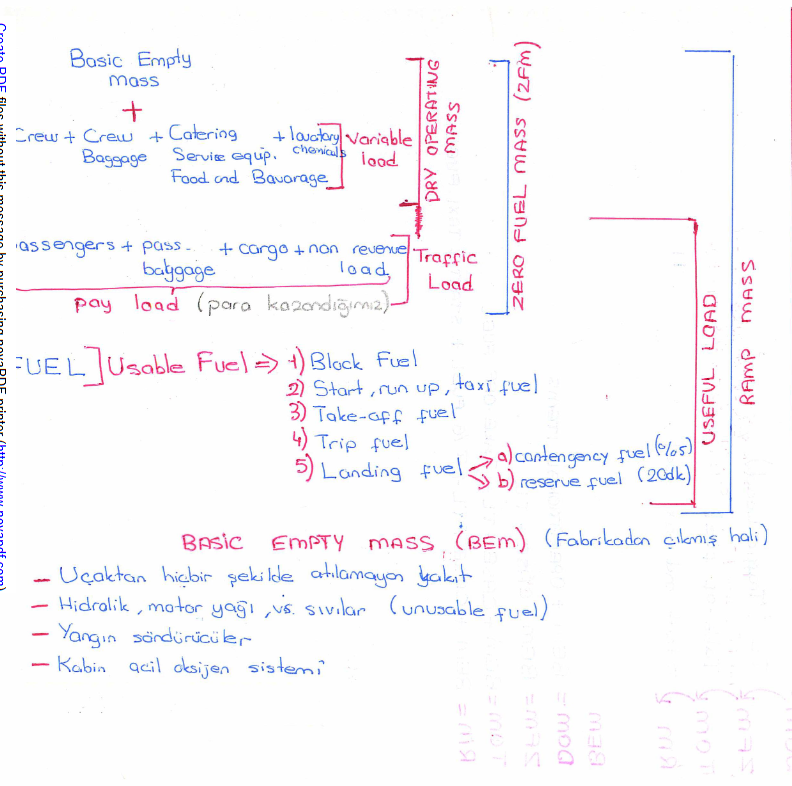 Basic Empty
mass
+
Crew + Crew + Catering + lavatory
Baggage Service equip. chemicals
Food and Bavarage
Variable
load
DRY OPERATING
MASS
ZERO FUEL MASS (ZFM)
assengers + pass. + cargo + non revenue
baggage load
Traffic
Load
pay load (para kazandığımız)
FUEL] Usable Fuel => 1) Block Fuel
2) Start, run up, taxi fuel
3) Take-off fuel
4) Trip fuel
5) Landing fuel
a) contengency fuel (%5)
b) reserve fuel (20dk)
USEFUL LOAD
RAMP MASS
BASIC EMPTY MASS (BEM) (Fabrikadan çıkmış hali)
- Uçaktan hiçbir şekilde atılamayan yakıt
- Hidrolik, motor yağı, vs. sıvılar (unusable fuel)
- Yangın söndürücüler
- Kabin acil oksijen sistemi
Create PDF files without this message by purchasing novaPDF printer (http://www.novapdf.com)
RM =
TOW =
ZFM =
DOW =
BEM
RM
TOW
ZFM